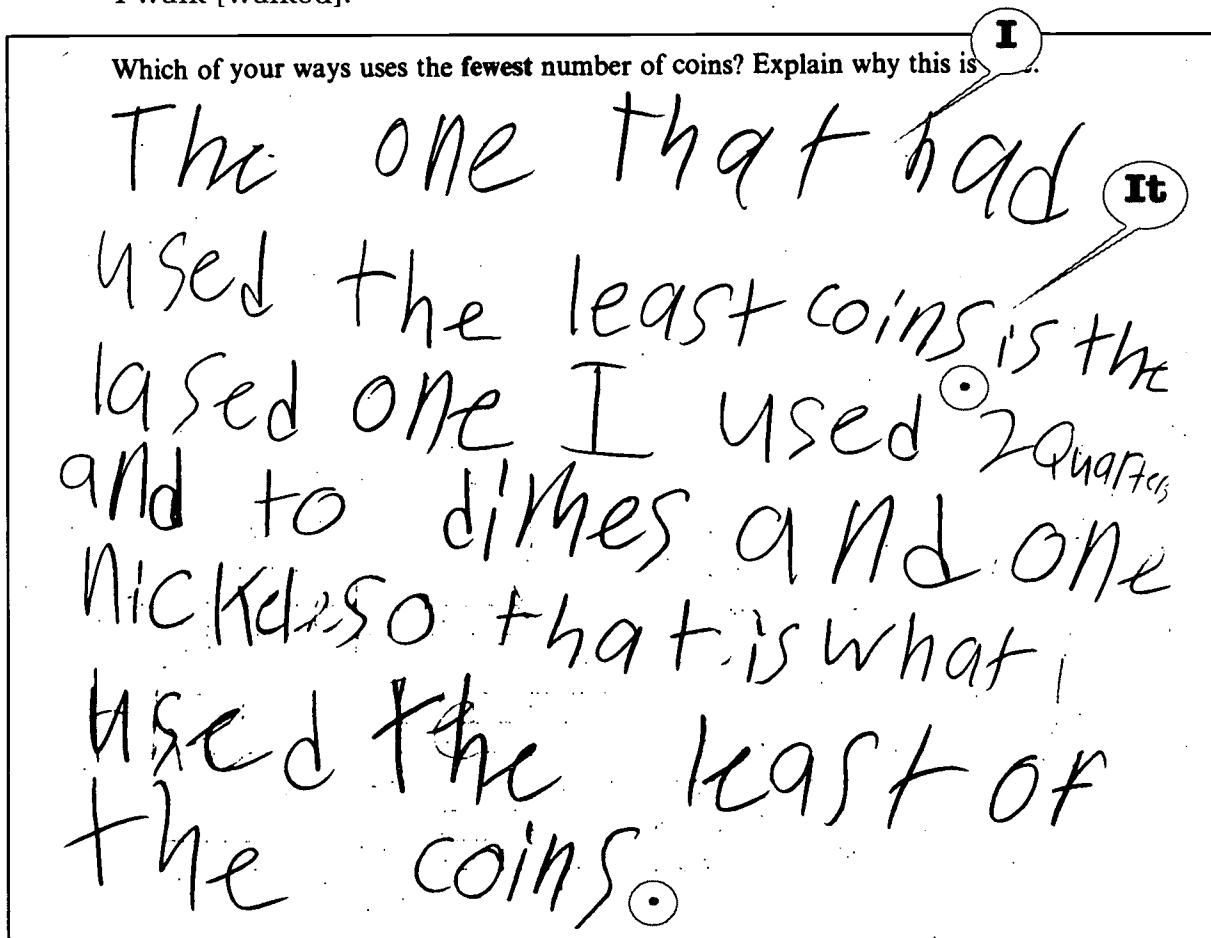 I walk [walked].
I
Which of your ways uses the fewest number of coins? Explain why this is
The one that had
It
used the least coins is the
lased one I used 2 Quarters
and to dimes and one
nickel so that is what i
used the least of
the coins.